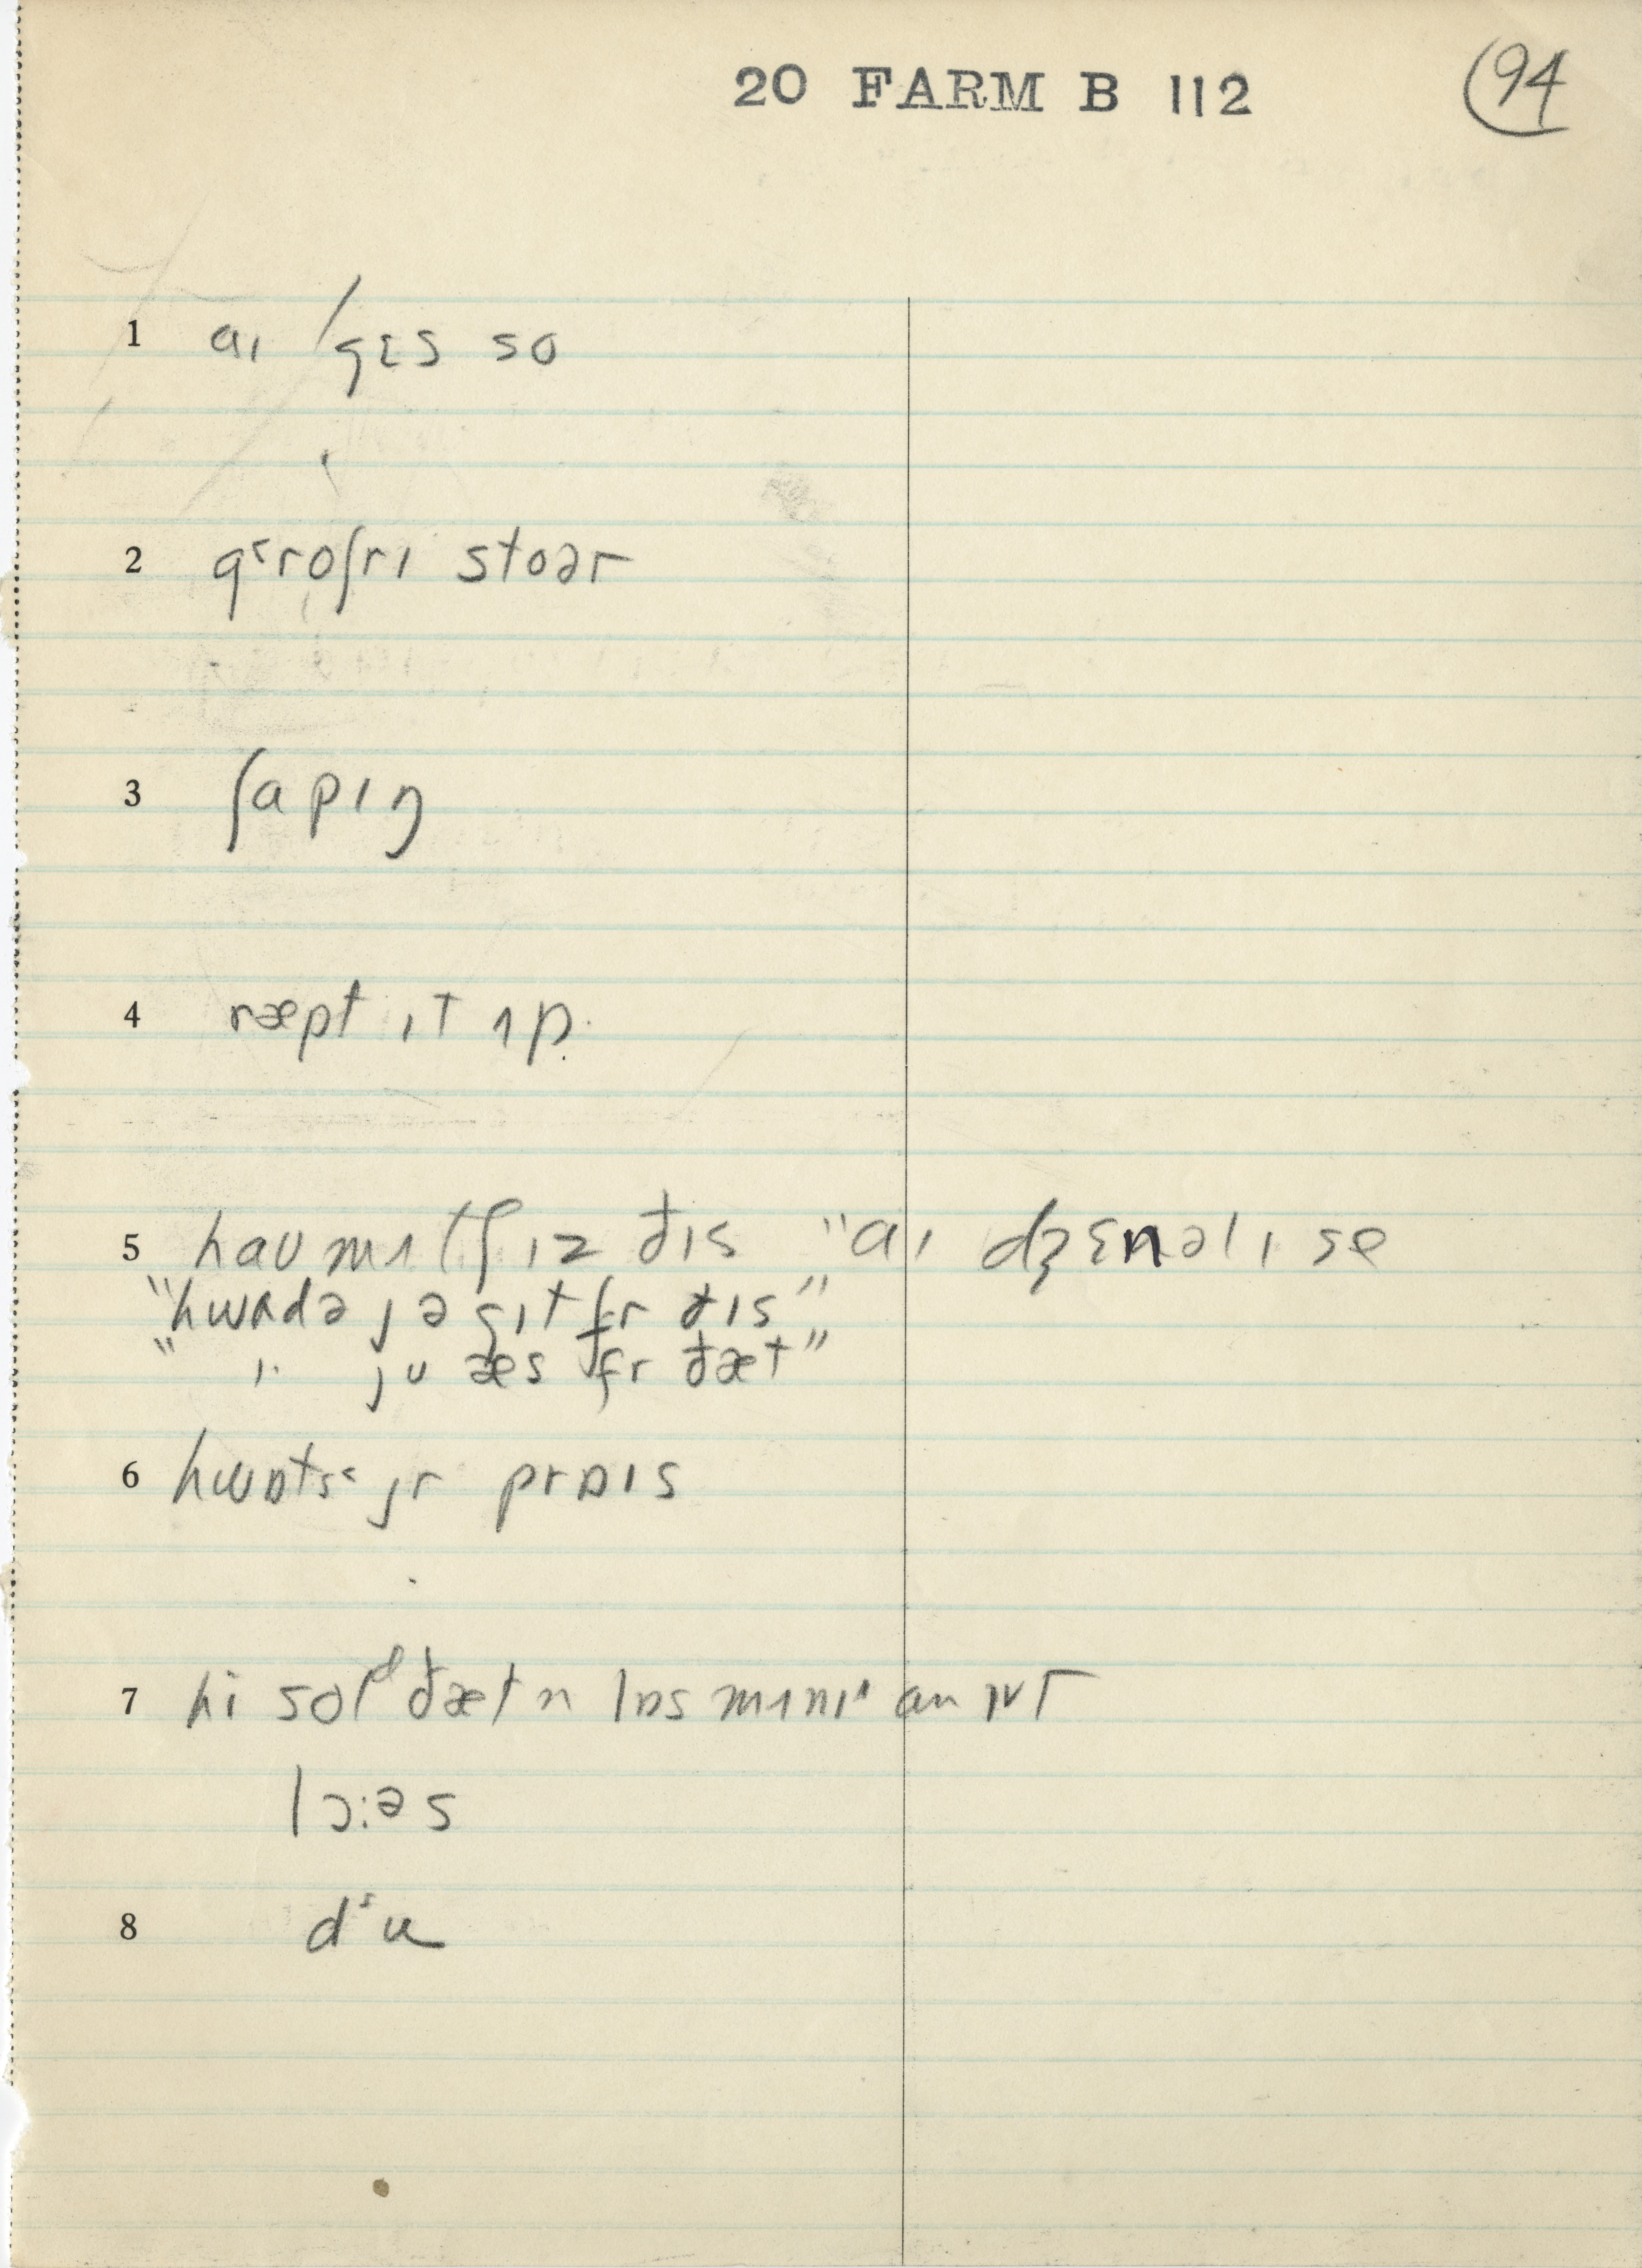 20 FARM B 112 94
1 aɪ /gɛs so
2 g˂roʃrɪ stoər
3 ʃapɪŋ
4 ræpt ɪt ʌp.
5 haʊ mʌtʃ ɪz ðɪs "aɪ dʒɛnəlɪ se
"hwɑdə jə gɪt fr ðɪs"
" ". jʊ æs fr ðæt"
6 hwɒts˂ jr prɒɪs
7 hi solᵈ ðæt n lɒs mʌnɪ an ɪt
lɔ:əs
8 d˂u